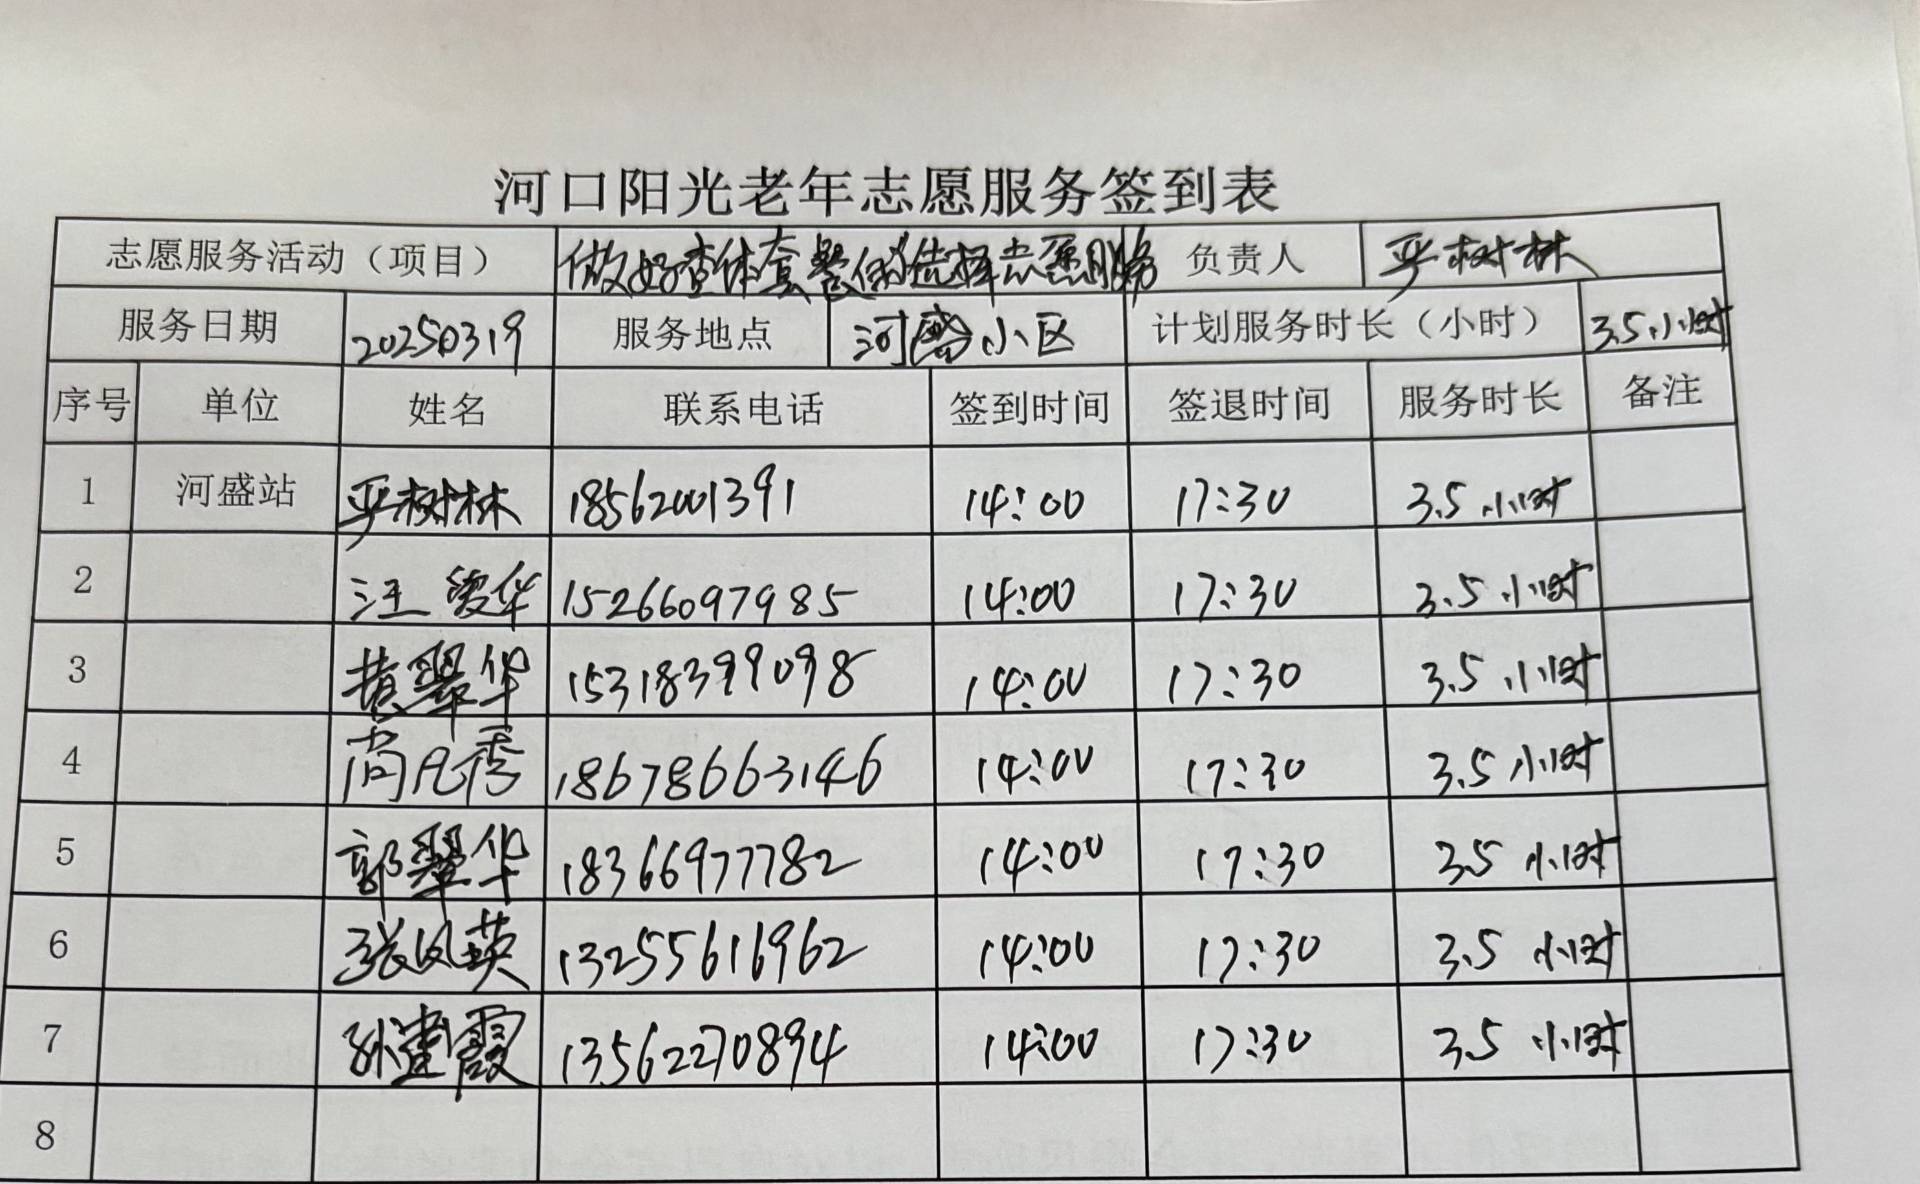 河口阳光老年志愿服务签到表
志愿服务活动（项目） 做好查体套餐的选择志愿服务 负责人 平树林
服务日期 20250319 服务地点 河盛小区 计划服务时长（小时） 3.5小时
序号 单位 姓名 联系电话 签到时间 签退时间 服务时长 备注
1 河盛站 平树林 18562001391 14:00 17:30 3.5小时
2 汪爱华 15266097985 14:00 17:30 3.5小时
3 黄翠华 15318399098 14:00 17:30 3.5小时
4 尚凡秀 18678663146 14:00 17:30 3.5小时
5 郭翠华 18366977782 14:00 17:30 3.5小时
6 张风英 13255616962 14:00 17:30 3.5小时
7 孙建霞 13562270894 14:00 17:30 3.5小时
8